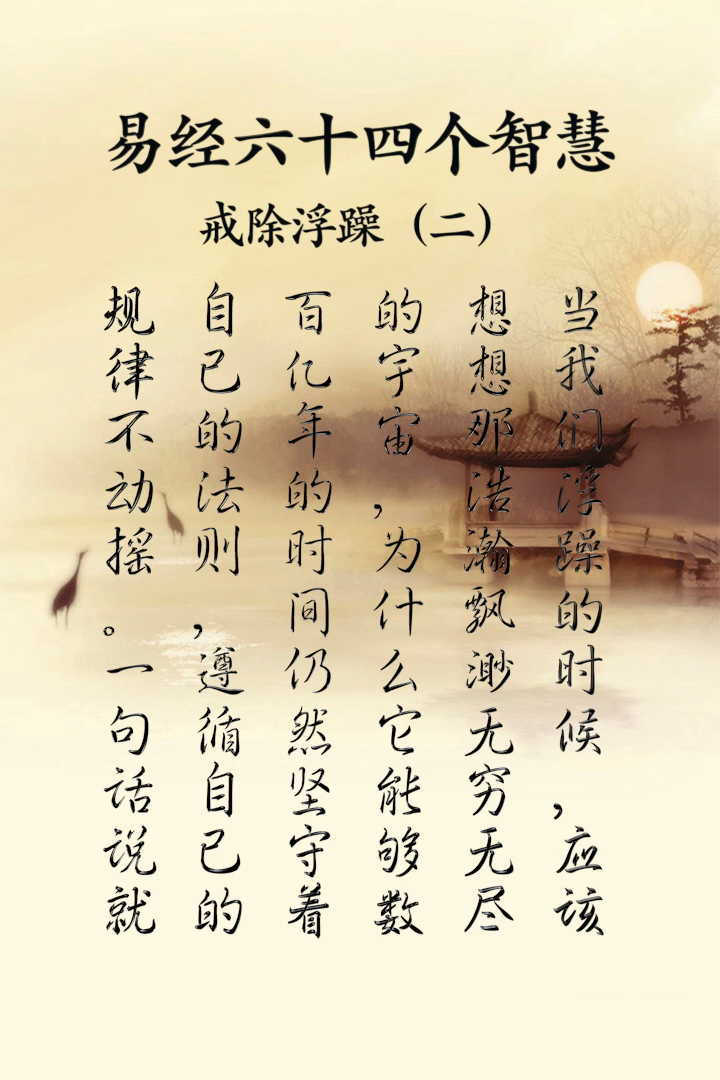 易经六十四个智慧
戒除浮躁（二）
当我们浮躁的时候，应该
想想那浩瀚飘渺无穷无尽
的宇宙，为什么它能够数
百亿年的时间仍然坚守着
自己的法则，遵循自己的
规律不动摇。一句话说就